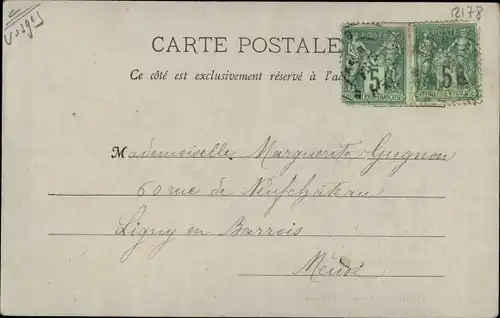 Vosges
R178
CARTE POSTALE
Ce côté est exclusivement réservé à l'a
POSTES POSTES
5 5
Mademoiselle Marguerite Gugnon
60 rue de Neufchâteau
Ligny en Barrois
Meuse